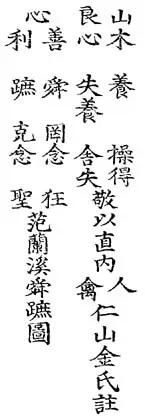 山木 養 操得 人
良心 失養 舍失 禽
敬以直内
仁山金氏註
心
善 舜 罔念 狂
利 蹠 克念 聖
范蘭溪舜蹠圖